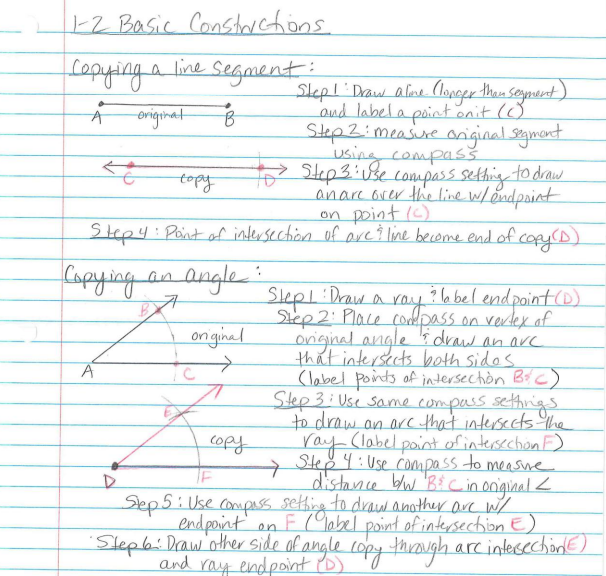 1-2 Basic Constructions
Copying a line segment:
Step 1: Draw a line (longer than segment)
and label a point on it (C)
A original B
Step 2: measure original segment
using compass
C copy D
Step 3: Use compass setting to draw
an arc over the line w/ endpoint
on point (C)
Step 4: Point of intersection of arc & line become end of copy (D)
Copying an angle:
Step 1: Draw a ray & label endpoint (D)
B
Step 2: Place compass on vertex of
original
original angle & draw an arc
that intersects both sides
A C
(label points of intersection B & C)
Step 3: Use same compass settings
E
to draw an arc that intersects the
copy
ray (label point of intersection F)
Step 4: Use compass to measure
D F
distance b/w B & C in original ∠
Step 5: Use compass setting to draw another arc w/
endpoint on F (label point of intersection E)
Step 6: Draw other side of angle copy through arc intersection (E)
and ray endpoint (D)